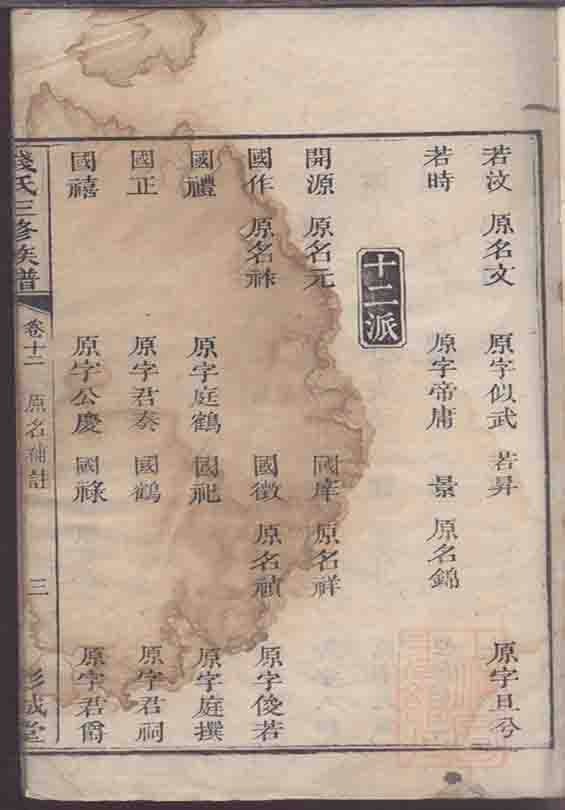 若汶 原名文 原字似武 若昇 原字旦兮
若時 原字帝庸 景 原名錦
十二派
開源 原名元 國庠 原名祥
國作 原名祚 國徵 原名禎 原字俊若
國禮 原字庭鶴 國祀 原字庭撰
國正 原字君奏 國鶴 原字君祠
國禧 原字公慶 國祿 原字君爵
錢氏三修族譜 卷十二 原名補註 三 彭城堂